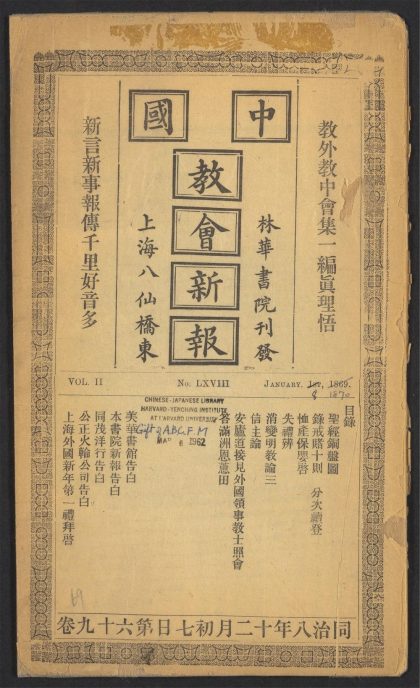 中國
教會新報
教外教中會集一編眞理悟
林華書院刊發
上海八仙橋東
新言新事報傳千里好音多
VOL. II No. LXVIII JANUARY, 1st, 1869.
8 1870
目錄
聖經銅盤圖
錄戒賭十則 分次續登
恤產保嬰啓
失禮辨
消變明教論三
信主論
安廬道接見外國領事教士照會
答滿洲恩蕙田
CHINESE-JAPANESE LIBRARY
HARVARD-YENCHING INSTITUTE
AT HARVARD UNIVERSITY
Gift of ABCFM
MAR 6 1962
美華書館告白
本書院新報告白
同茂洋行告白
公正火輪公司告白
上海外國新年第一禮拜啓
69
同治八年十二月初七日第六十九卷